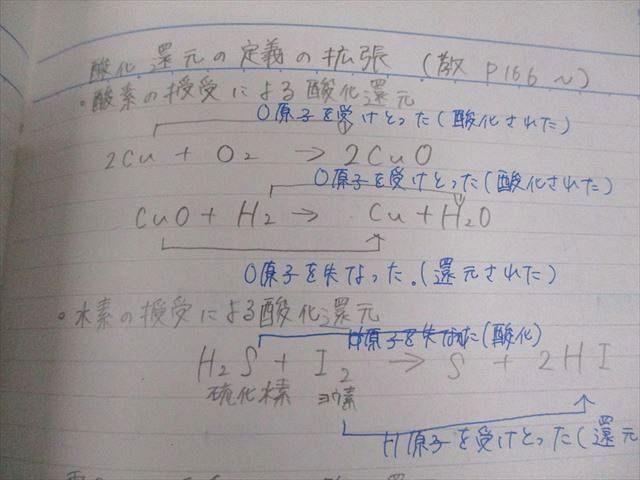 酸化還元の定義の拡張 (教 P166~)
・酸素の授受による酸化還元
O原子を受けとった(酸化された)
2Cu + O2 → 2CuO
O原子を受けとった(酸化された)
CuO + H2 → Cu + H2O
O原子を失なった。(還元された)
・水素の授受による酸化還元
H原子を失なった(酸化)
H2S + I2 → S + 2HI
硫化水素 ヨウ素
H原子を受けとった(還元